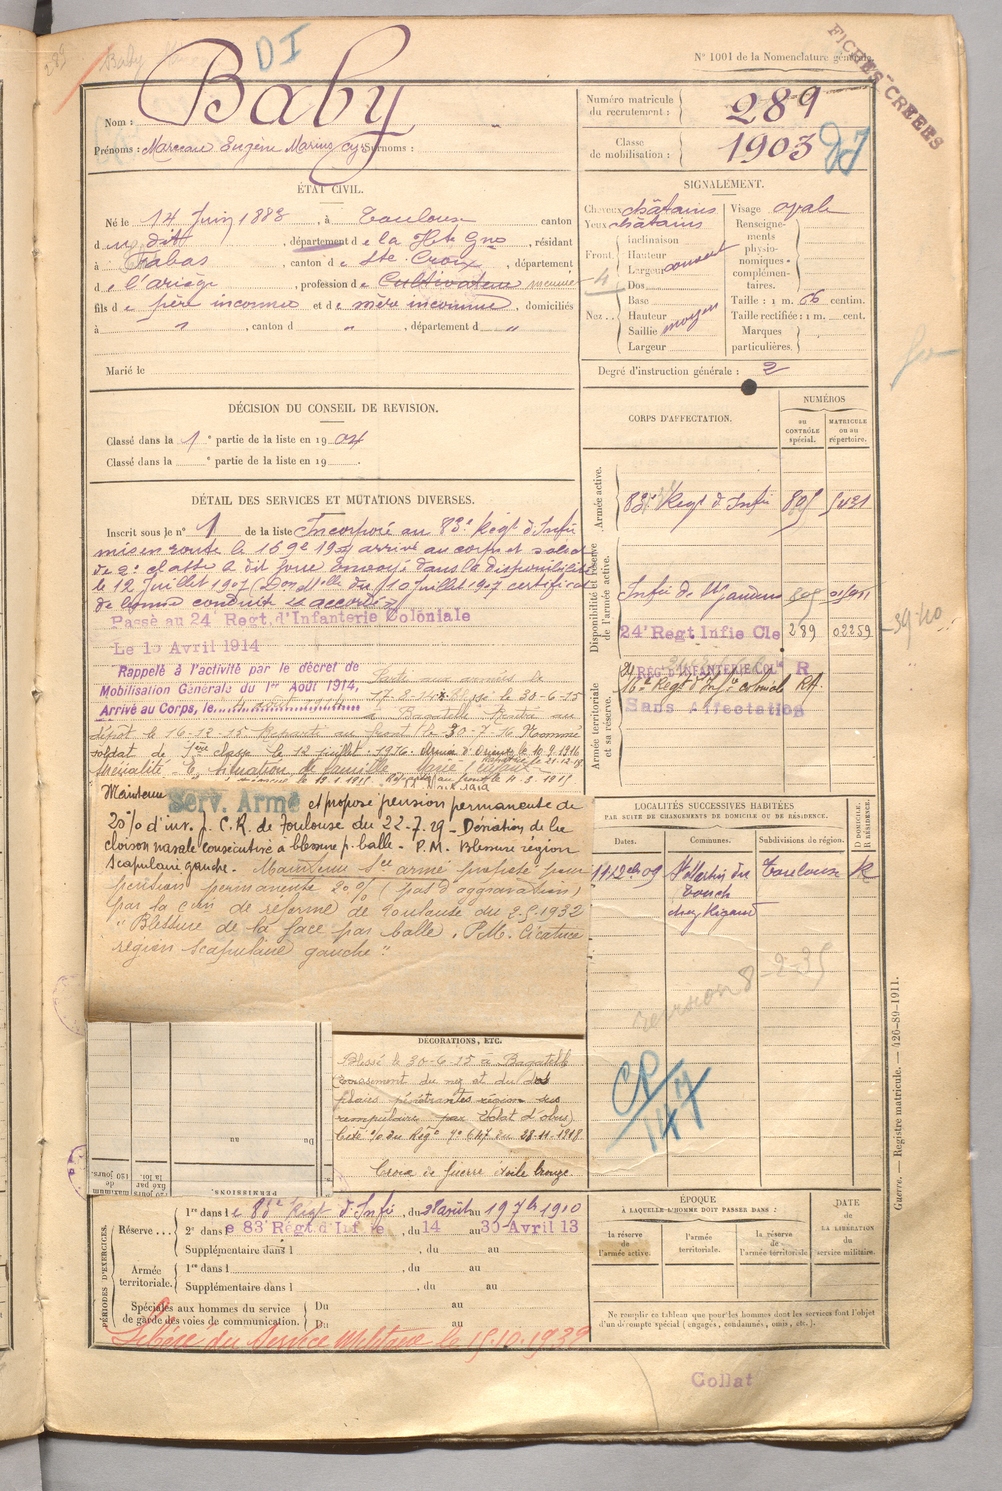 289
DI
N° 1001 de la Nomenclature générale
FICHES CREEES
Nom : Baby
Prénoms : Marceau Eugène Marius Surnoms : "
Numéro matricule du recrutement : 289
Classe de mobilisation : 1903
ÉTAT CIVIL.
Né le 14 Juin 1883, à Toulouse canton
d u dit, département de la Hte Gne, résidant
à Fabas, canton de Ste Croix, département
de l'ariège, profession de Cultivateur
fils de père inconnu et de mère inconnue, domiciliés
à ", canton d ", département d "
Marié le
SIGNALEMENT.
Cheveux châtains
Yeux châtains
Front
Inclinaison
Hauteur
Largeur couvert
Nez
Dos
Base
Hauteur
Saillie moyen
Largeur
Visage ovale
Renseignements physionomiques complémentaires.
Taille : 1 m. 66 centim.
Taille rectifiée : 1 m. cent.
Marques particulières.
Degré d'instruction générale : 2
DÉCISION DU CONSEIL DE REVISION.
Classé dans la 1e partie de la liste en 1904
Classé dans la e partie de la liste en 19 .
CORPS D'AFFECTATION.
NUMÉROS
au CONTRÔLE spécial.
MATRICULE ou au répertoire.
Armée active.
83e Regt d'Infie 5421
Disponibilité et réserve de l'armée active.
Infie de St Gaudens
24e Regt Infie Cle 289 02259
39-40
Armée territoriale et sa réserve.
REG. D'INFANTERIE COLle R
16e Regt d'Infie colonial RA
Sans Affectation
DÉTAIL DES SERVICES ET MUTATIONS DIVERSES.
Inscrit sous le n° 1 de la liste Incorporé au 83e Regt d'Infie
mis en route le 16 9bre 1904 arrivé au corps et soldat
de 2e classe le dit jour envoyé dans la disponibilité
le 12 Juillet 1907 (Don Mlle du 10 Juillet 1907 certificat
de bonne conduite accordé
Passé au 24e Regt. d'Infanterie Coloniale
Le 1er Avril 1914
Rappelé à l'activité par le décret de
Mobilisation Générale du 1er Août 1914,
Arrivé au Corps, le
Parti aux armées le
17-8-14 Blessé le 30-6-15
à Bagatelle Rentré au
dépôt le 16-12-15 Reparti au front le 30-7-16 Nommé
soldat de 1ère classe le 12 juillet 1916. Armée d'Orient le 10 9 1916
situation de famille Marié 1 enfant
Maintenu Serv. Armé et propose pension permanente de
20% d'inv. p. C.R. de Toulouse du 22-7-29 - Déviation de la
cloison nasale consécutive à blessure p. balle - P.M. Blessure région
scapulaire gauche. Maintenu Sce armé proposé pour
pension permanente 20% (pas d'aggravation)
par la Con de réforme de Toulouse du 2-5-1932
"Blessure de la face par balle. P.M. Cicatrice
région scapulaire gauche"
LOCALITÉS SUCCESSIVES HABITÉES
PAR SUITE DE CHANGEMENTS DE DOMICILE OU DE RÉSIDENCE.
Dates. Communes. Subdivisions de région. D DOMICILE. R RÉSIDENCE.
11 12bre 09 St Martin du Touch chez Rigaud Toulouse R
revision 8-2-35
CP/147
DÉCORATIONS, ETC.
Blessé le 30-6-15 à Bagatelle
écrasement du nez et du dos
plaies pénétrantes région sus
par Eclat d'obus
Cité o/ du Régt n° 647 du 28-11-1918
Croix de guerre étoile bronze.
PERMISSIONS.
Du
au
PÉRIODES D'EXERCICES.
Réserve ...
1re dans le 83e Regt d'Infie, du 28 août au 19 7bre 1910
2e dans le 83e Régt. d'Infie, du 14 au 30 Avril 13
Supplémentaire dans l , du au
Armée territoriale.
1re dans l , du au
Supplémentaire dans l , du au
Spéciales aux hommes du service de garde des voies de communication.
Du au
Du au
Libéré du service militaire le 15.10.1932
ÉPOQUE
À LAQUELLE L'HOMME DOIT PASSER DANS :
la réserve de l'armée active.
l'armée territoriale.
la réserve de l'armée territoriale
DATE de LA LIBÉRATION du service militaire.
Ne remplir ce tableau que pour les hommes dont les services font l'objet
d'un décompte spécial (engagés, condamnés, omis, etc.).
Guerre. — Registre matricule. — 426-89-1911.
Collat